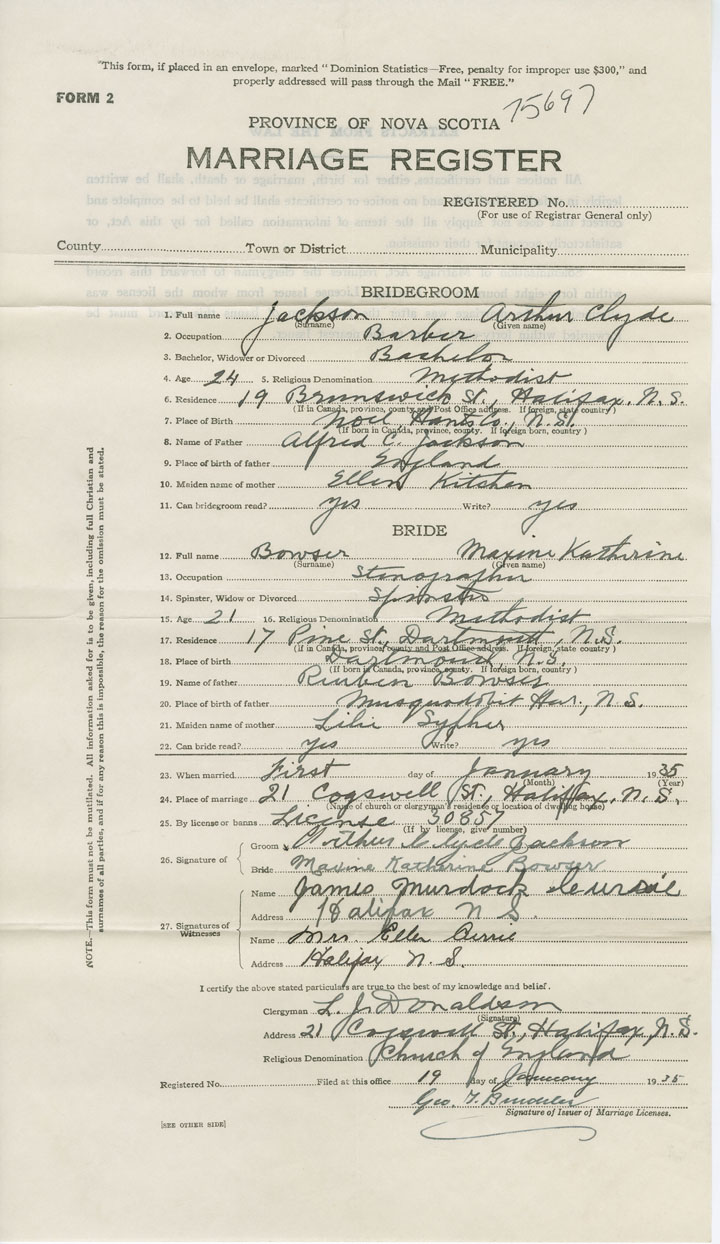 "This form, if placed in an envelope, marked "Dominion Statistics—Free, penalty for improper use $300," and
properly addressed will pass through the Mail "FREE."
FORM 2
75697
PROVINCE OF NOVA SCOTIA
MARRIAGE REGISTER
REGISTERED No.
(For use of Registrar General only)
County Town or District Municipality
BRIDEGROOM
1. Full name Jackson Arthur Clyde
(Surname) (Given name)
2. Occupation Barber
3. Bachelor, Widower or Divorced Bachelor
4. Age 24 5. Religious Denomination Methodist
6. Residence 19 Brunswick St., Halifax, N.S.
(If in Canada, province, county and Post Office address. If foreign, state country)
7. Place of Birth Noel Hants Co., N.S.
(If born in Canada, province, county. If foreign born, country)
8. Name of Father Alfred C. Jackson
9. Place of birth of father England
10. Maiden name of mother Ellen Kitchen
11. Can bridegroom read? yes Write? yes
BRIDE
12. Full name Bowser Maxine Katherine
(Surname) (Given name)
13. Occupation Stenographer
14. Spinster, Widow or Divorced Spinster
15. Age 21 16. Religious Denomination Methodist
17. Residence 17 Pine St., Dartmouth, N.S.
(If in Canada, province, county and Post Office address. If foreign, state country)
18. Place of birth Dartmouth, N.S.
(If born in Canada, province, county. If foreign born, country)
19. Name of father Reuben Bowser
20. Place of birth of father Musquodobit Har., N.S.
21. Maiden name of mother Lilie Sypher
22. Can bride read? yes Write? yes
23. When married First day of January 1935
(Month) (Year)
24. Place of marriage 21 Cogswell St., Halifax, N.S.
(Name of church or clergyman's residence or location of dwelling house)
25. By license or banns License 30857
(If by license, give number)
26. Signature of
Groom Arthur Clyde Jackson
Bride Maxine Katherine Bowser
27. Signatures of Witnesses
Name James Murdock
Address Halifax N S.
Name Mrs. Ellen
Address Halifax N. S.
I certify the above stated particulars are true to the best of my knowledge and belief.
Clergyman L. J. Donaldson
(Signature)
Address 21 Cogswell St., Halifax, N.S.
Religious Denomination Church of England
Registered No. Filed at this office 19 day of January 1935
Geo. F.
Signature of Issuer of Marriage Licenses.
[SEE OTHER SIDE]
NOTE.—This form must not be mutilated. All information asked for is to be given, including full Christian and
surnames of all parties, and if for any reason this is impossible, the reason for the omission must be stated.